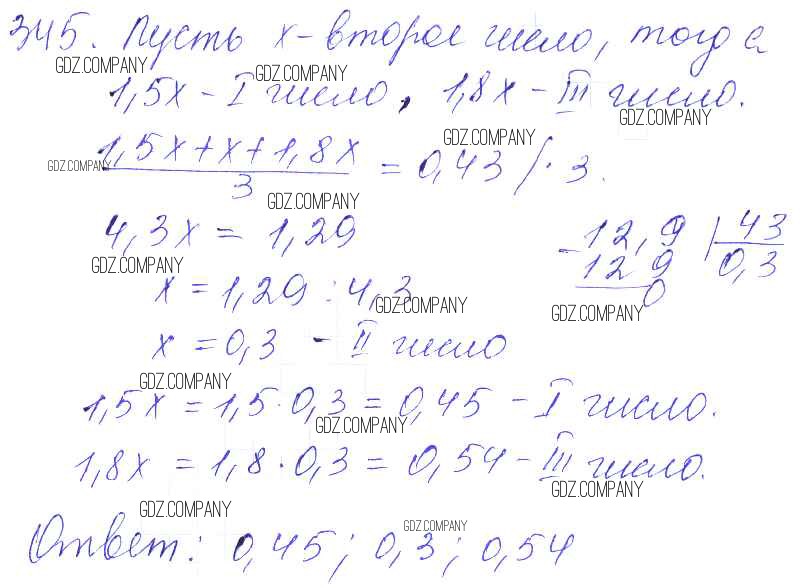 345. Пусть x - второе число, тогда
GDZ.COMPANY GDZ.COMPANY
1,5x - I число, 1,8x - III число.
GDZ.COMPANY GDZ.COMPANY
1,5x + x + 1,8x
GDZ.COMPANY
3
= 0,43 / · 3.
GDZ.COMPANY
4,3x = 1,29
GDZ.COMPANY
- 12,9 | 43
12 9 0,3
0
GDZ.COMPANY
x = 1,29 : 4,3
GDZ.COMPANY
x = 0,3 - II число
GDZ.COMPANY
1,5x = 1,5 · 0,3 = 0,45 - I число.
GDZ.COMPANY
1,8x = 1,8 · 0,3 = 0,54 - III число.
GDZ.COMPANY GDZ.COMPANY
GDZ.COMPANY
Ответ: 0,45; 0,3; 0,54